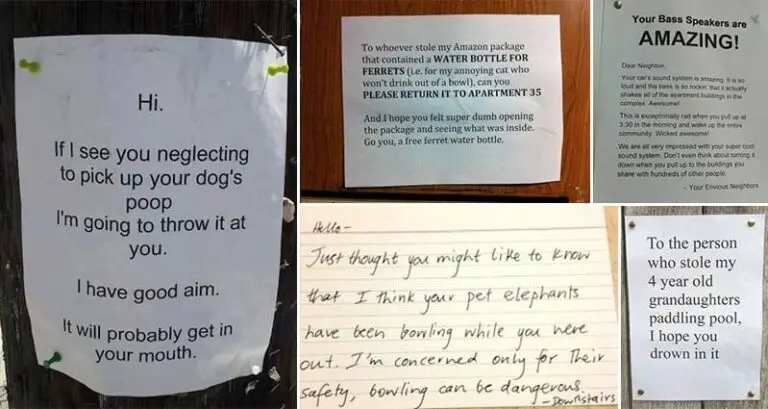 Hi.
If I see you neglecting
to pick up your dog's
poop
I'm going to throw it at
you.
I have good aim.
It will probably get in
your mouth.
To whoever stole my Amazon package
that contained a WATER BOTTLE FOR
FERRETS (i.e. for my annoying cat who
won't drink out of a bowl), can you
PLEASE RETURN IT TO APARTMENT 35
And I hope you felt super dumb opening
the package and seeing what was inside.
Go you, a free ferret water bottle.
Your Bass Speakers are
AMAZING!
Dear Neighbor,
Your car's sound system is amazing. It is so
loud and the bass is so rockin' that it actually
shakes all of the apartment buildings in the
complex. Awesome!
This is exceptionally rad when you pull up at
3:30 in the morning and wake up the entire
community. Wicked awesome!
We are all very impressed with your super cool
sound system. Don't even think about turning it
down when you pull up to the buildings you
share with hundreds of other people.
- Your Envious Neighbors
Hello-
Just thought you might like to know
that I think your pet elephants
have been bowling while you were
out. I'm concerned only for their
safety, bowling can be dangerous.
-Downstairs
To the person
who stole my
4 year old
grandaughters
paddling pool,
I hope you
drown in it